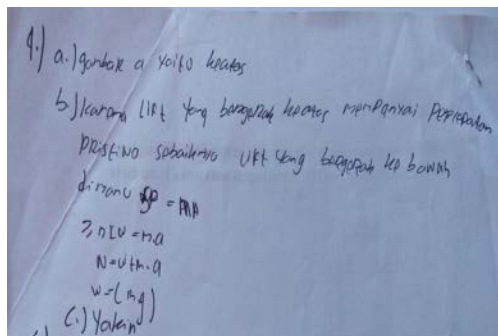 4.) a.) gambar a yaitu keatas
b.) karena lift yang bergerak keatas mempunyai percepatan
positive sebaiknya lift yang bergerak ke bawah
dimana
N = w + m.a
w = (mg)
c.) Yakin